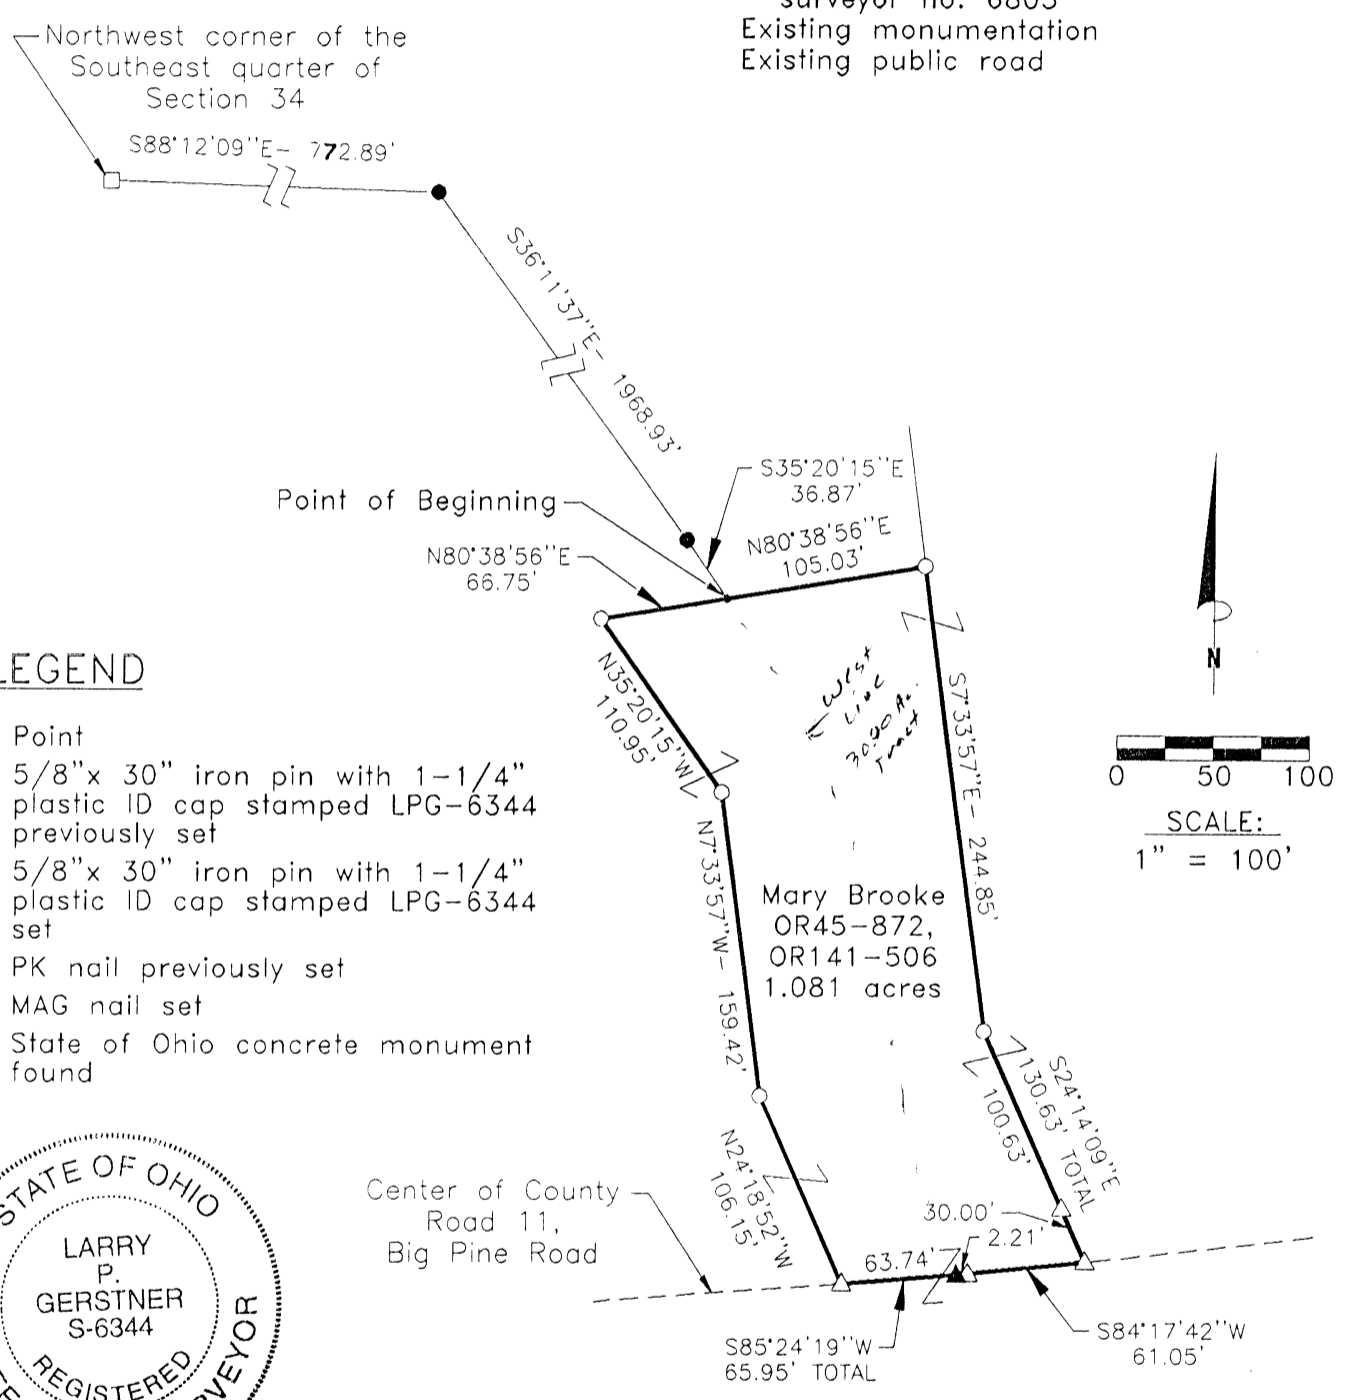 surveyor no. 6803
Existing monumentation
Existing public road
Northwest corner of the
Southeast quarter of
Section 34
S88°12'09"E- 772.89'
S36°11'37"E- 1968.93'
Point of Beginning
S35°20'15"E
36.87'
N80°38'56"E
66.75'
N80°38'56"E
105.03'
N35°20'15"W
110.95'
West
Line
30.00 Ac.
Tract
S7°33'57"E- 244.85'
N
0 50 100
SCALE:
1" = 100'
LEGEND
Point
5/8"x 30" iron pin with 1-1/4"
plastic ID cap stamped LPG-6344
previously set
5/8"x 30" iron pin with 1-1/4"
plastic ID cap stamped LPG-6344
set
PK nail previously set
MAG nail set
State of Ohio concrete monument
found
N7°33'57"W- 159.42'
Mary Brooke
OR45-872,
OR141-506
1.081 acres
S24°14'09"E
130.63' TOTAL
100.63'
N24°18'52"W
106.15'
30.00'
2.21'
63.74'
Center of County
Road 11,
Big Pine Road
S85°24'19"W
65.95' TOTAL
S84°17'42"W
61.05'
STATE OF OHIO
LARRY
P.
GERSTNER
S-6344
REGISTERED